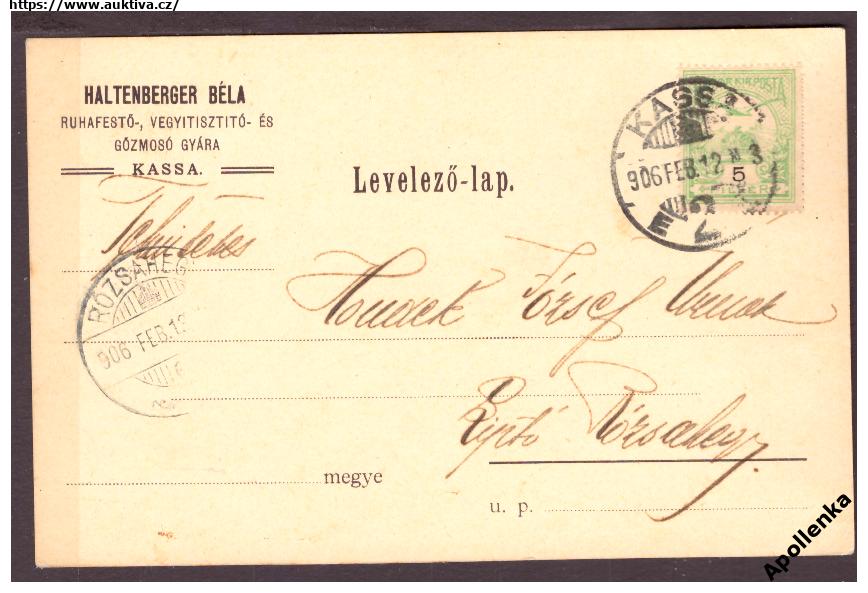 https://www.auktiva.cz/
HALTENBERGER BÉLA
RUHAFESTŐ-, VEGYITISZTITÓ- ÉS
GŐZMOSÓ GYÁRA
KASSA.
Levelező-lap.
KASSA
906 FEB. 12 N 3
2
5
Tekintetes
RÓZSAHEG
906 FEB. 12
József Urnak
Liptó Rózsahegy
megye
u. p.
Apollenka